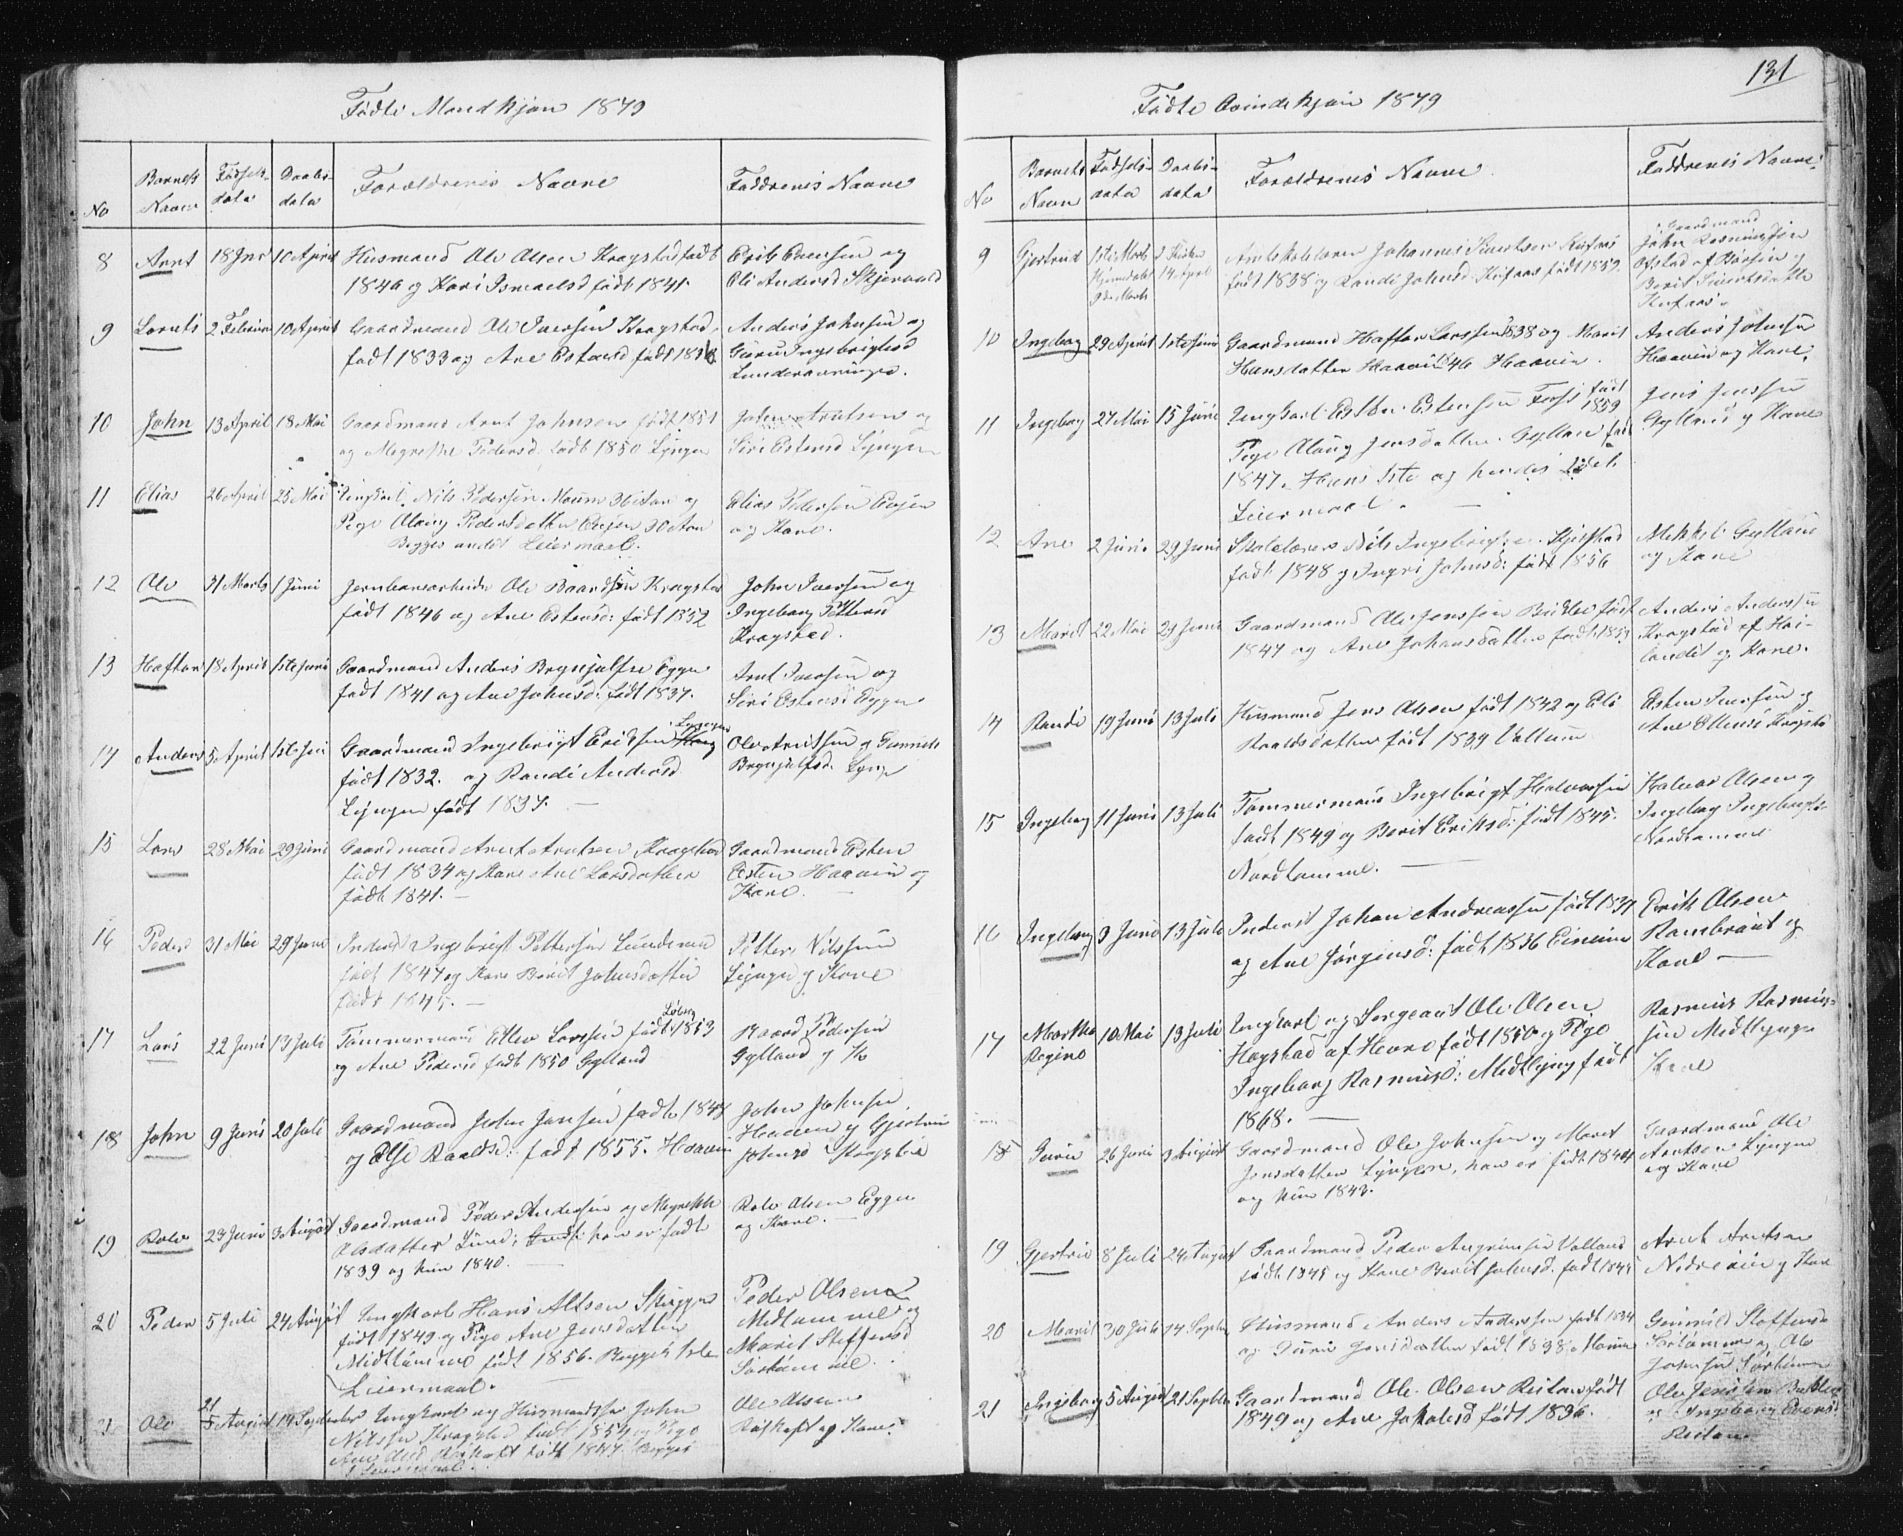 131
Födte Mandkjön 1879
No
Barnets Navn
Födsels data
Daabs data
Forældrenes Navne
Faddrenes Navne
8 Arnt 18 Jnr 10 April Husmand Ole Olsen Kragstad födt
1840 og Kari Ismaelsd födt 1841.
Erik Evensen og
Eli Andersd Skjeraasld
9 Lorents 2 Februar 10 April Gaardmand Ole Iversen Kragstad
födt 1833 og Ane Estensd födt 1836
Anders Johnsen og
Guru Ingebrigtsd
10 John 13 April 18 Mai Gaardmand Arnt Johnsen födt 1851
og Megrethe Pedersd födt 1850 Lyngen
John Arntsen og
Siri Estensd Lyngen
11 Elias 26 April 25 Mai Ungkarl Nils Pedersen Moum 36 Aar og
Pige Olaug Pedersdatter Evjen 30 Aar
Begges andet Leiermaal.
Elias Pedersen Evjen
og Kone.
12 Ole 31 Marts 1 Juni Jernbanearbeider Ole Baardsen Kragstad
födt 1846 og Ane Estensd: födt 1852
John Iversen og
Ingeborg Pettersd
Kragstad.
13 Haftor 18 April 1ste Juni Gaardmand Anders Brynjulfse Eggen
födt 1841 og Ane Johnsd: födt 1837.
Arnt Iversen og
Siri Estensd Eggen
14 Anders 5 April 1ste Juni Gaardmand Ingebrigt Eriksen Lyngen
födt 1832. og Randi Andersd
Lyngen födt 1837. —
Ole Arntsen og Gunnild
Brynjulfsd. Lynge
15 Lars 28 Mai 29 Juni Gaardmand Arnt Arntsen Kragstad
födt 1834 og Kone Ane Larsdatter
födt 1841. —
Gaardmand Esten
Esten Haavin og
Kone. —
16 Peder 31 Mai 29 Juni Inderst Ingebrigt Pettersen Lundemo
födt 1847 og Kone Berit Johnsdatter
födt 1845. —
Petter Nilssen
Lyngen og Kone
17 Lars 22 Juni 13 Juli Tömmermand Ellev Larssen födt 1853
og Ane Pedersd födt 1850 Gylland
Baard Pedersen
Gylland og Ko
18 John 9 Juni 20 Juli Gaardmand John Jonsen födt 1848
og Else Roaldsd: födt 1855. Haavin
John Johnsen
Haavin og Gjertrud
Johnsd Kragstad
19 Rolv 23 Juni 3 August Gaardmand Peder Andersen og Megrethe
Olsdatter Lund; han er födt
1839 og hun 1840. —
Rolv Olsen Eggen
og Kone. —
20 Peder 5 Juli 24 August Ungkarl Hans Altsen Skuggen
födt 1849 og Pige Ane Jensdatter
Midtlamme födt 1856. Begges 1ste
Leiermaal.
Peder Olsen
Midlamme og
Marit Steffensd
Sörlamme.
21 Ole 21 August 14 September Ungkarl og Husmandssøn John
Nilssen Kragstad födt 1854 og Pige
födt 1847. Begges
1 Leiermaal.
Ole Olsen
og Kone.
Födte Qvindekjön 1879
No
Barnets Navn
Födsels data
Daabs data
Forældrenes Navne
Faddrenes Navne
9 Gjertrud 1ste Marts
9de Marts
14 April
Johannes Sivertsen Kufaas
födt 1838 og Randi Johnsd Kufaas födt 1839.
Gaardmand
John Rasmussen
Ofstad af Börsen og
Berit Sivertsdatter
Kufaas.
10 Ingeborg 29 April 1ste Juni Gaardmand Haftor Larssen 1838 og Marit
Hansdatter Haavin 1846 Haavin.
Anders Johnsen
Haavin og Kone.
11 Ingeborg 27 Mai 15 Juni Ungkarl Esten Estensen Foss födt 1859
Pige Olaug Jensdatter Gylland födt
1847. Hans 1ste og hendes 2det
Leiermaal. —
Jens Jenssen
Gylland og Kone
12 Ane 2 Juni 29 Juni Skolelærer Nils Ingebrigtse. Kjelstad
födt 1848 og Ingri Johnsd: födt 1856
Mikkel Gylland
og Kone
13 Marit 22 Mai 29 Juni Gaardmand Ole Jenssen Bredle födt
1847 og Ane Johansdatter födt 1853
Anders Anderssen
Kragstad af Höi-
landet og Kone.
14 Randi 19 Juni 13 Juli Husmand Jens Olsen födt 1842 og Eli
Roaldsdatter födt 1839 Vollum
Esten Iversen og
Ane Ellensd Kragstad
15 Ingeborg 11 Juni 13 Juli Tömmermand Ingebrigt Halvorsen
födt 1849 og Berit Eriksd: födt 1845.
Nordtamme. —
Halvor Olsen og
Ingeborg Ingebrigtsd
Nordtamme
16 Ingeborg 3 Juni 13 Juli Inderst Johan Andreassen födt 1839
og Ane Jörginsd: födt 1836 Eineim
Erik Olsen
Rambraut og
Kone —
17 Martha Regine 10 Mai 13 Juli Ungkarl og Sergeant Ole Olsen
Hagstad af Horve födt 1850 og Pige
Ingeborg Rasmusd: Midtlyng födt
1868. —
Rasmus Rasmus-
sen Midtlyngen
Kone
18 Guru 26 Juni 3 August Gaardmand Ole Johnsen og Marit
Jonsdatter Lyngen, han er födt 1840
og hun 1843.
Gaardmand Ole
Arntsen Lyngen
og Kone
19 Gjertrud 8 Juli 24 August Gaardmand Peder Angrimsen Volland
födt 1845 og Kone Berit Johnsd. födt 1845
Arnt Arntsen
og Kone
20 Marit 30 Juli 14 Septbr Husmand Anders Anderssen födt 1834
og Guru Jonsdatter födt 1838. Moum
Gunnild Steffensd
Sörlamme og Ole
Johnsen Sörlamme
21 Ingeborg 5 August 21 Septbr Gaardmand Ole Olsen Reitan födt
1849 og Ane Jakobsd födt 1836.
Ole Jenssen
og Ingeborg Evensd
Reitan